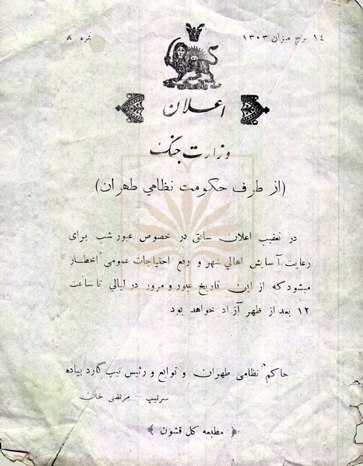 ۱٤ برج میزان ۱۳۰۳
نمره ۸
اعلان
وزارت جنگ
(از طرف حکومت نظامی طهران)
در تعقیب اعلان سابق در خصوص عبور شب برای
رعایت آسایش اهالی شهر و رفع احتیاجات عمومی اخطار
میشود که از این تاریخ عبور و مرور در لیالی تا ساعت
۱۲ بعد از ظهر آزاد خواهد بود
حاکم نظامی طهران و توابع و رئیس تیپ گارد پیاده
سرتیپ مرتضی خان
مطبعه کل قشون